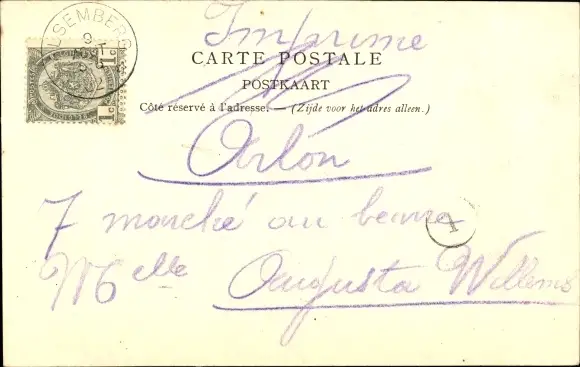 Imprimé
CARTE POSTALE
POSTKAART
Côté réservé à l'adresse. — (Zijde voor het adres alleen.)
Arlon
7 marché au beurre
Melle Augusta Willems
ALSEMBERG
1c 1c
1